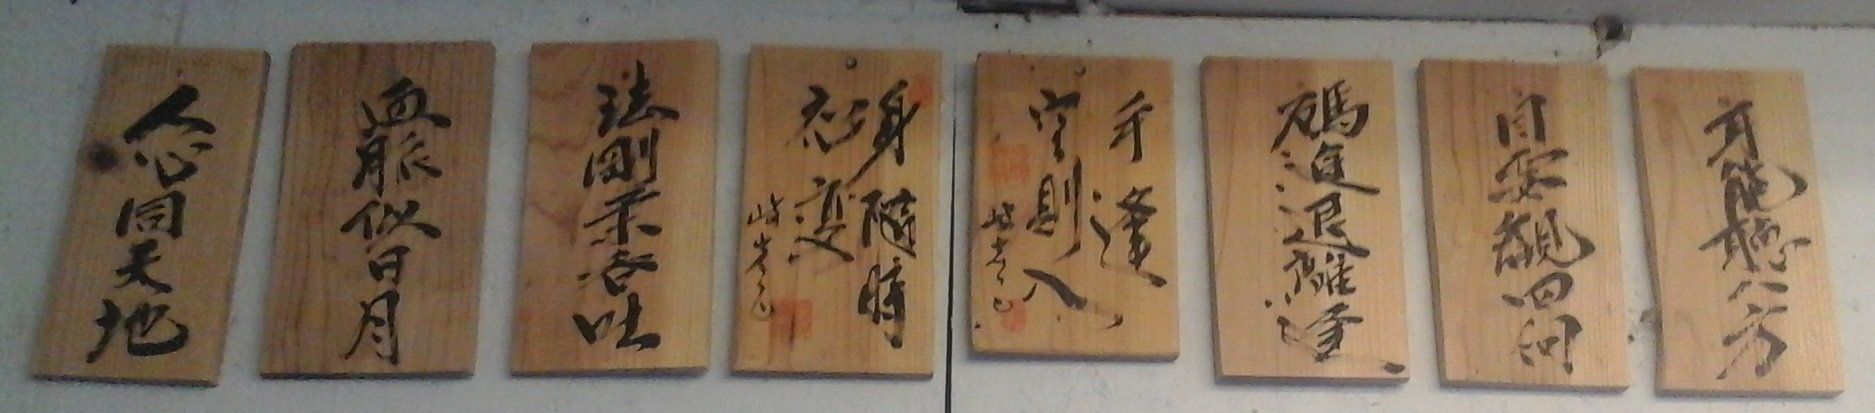 人心同天地
血脈似日月
法剛柔呑吐
身随時
応変
手逢
空則入
碼進退離逢
目要観四向
耳能聴八方